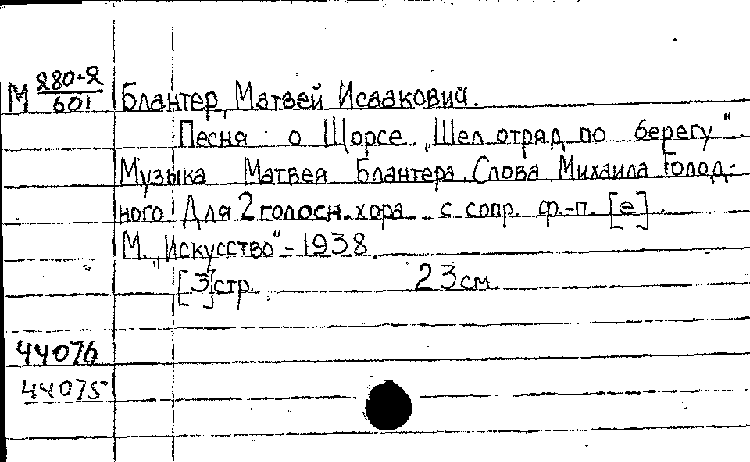 М 280-2/601
Блантер, Матвей Исаакович.
Песня о Щорсе „Шел отряд по берегу".
Музыка Матвея Блантера. Слова Михаила Голод-
ного. Для 2 голосн. хора с сопр. ф.-п. [e]
М. „Искусство" - 1938.
[3] стр. 23 см.
44076
44075